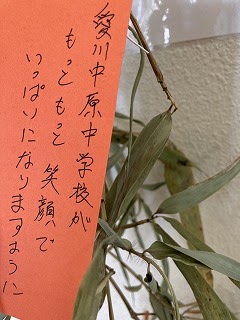 愛川中原中学校が
もっともっと笑顔で
いっぱいになりますように